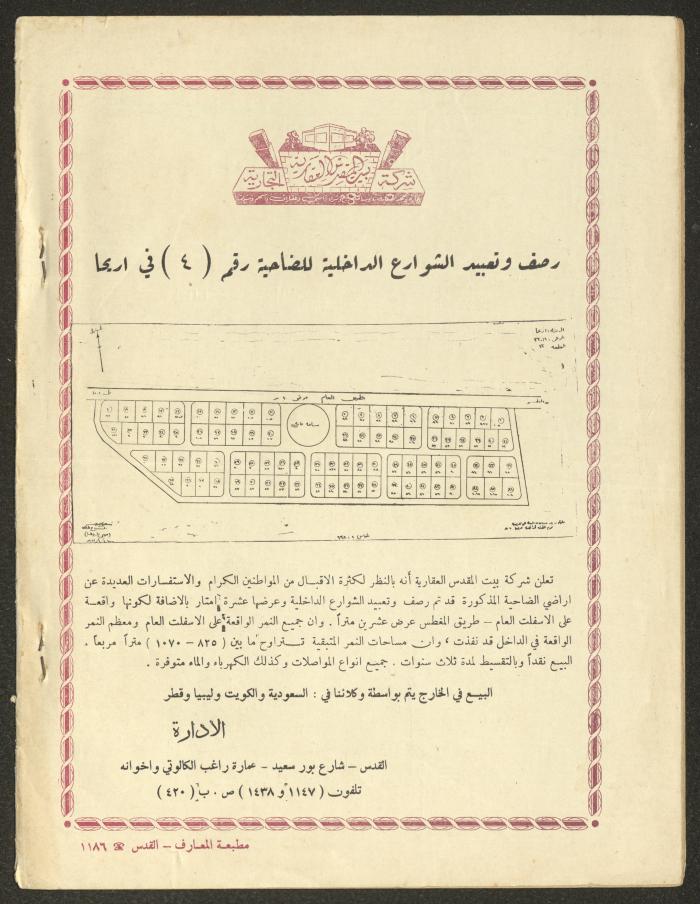 شركة بيت المقدس العقارية التجارية
رصف وتعبيد الشوارع الداخلية للضاحية رقم ( ٤ ) في اريحا
الطريق العام عرض
ساحة عامة
تعلن شركة بيت المقدس العقارية أنه بالنظر لكثرة الاقبال من المواطنين الكرام والاستفسارات العديدة عن
اراضي الضاحية المذكورة قد تم رصف وتعبيد الشوارع الداخلية وعرضها عشرة امتار بالاضافة لكونها واقعة
على الاسفلت العام – طريق المغطس عرض عشرين متراً . وان جميع النمر الواقعة على الاسفلت العام ومعظم النمر
الواقعة في الداخل قد نفذت ، وان مساحات النمر المتبقية تتراوح ما بين ( ٨٢٥ – ١٠٧٠ ) متراً مربعاً .
البيع نقداً وبالتقسيط لمدة ثلاث سنوات . جميع انواع المواصلات وكذلك الكهرباء والماء متوفرة .
البيع في الخارج يتم بواسطة وكلائنا في : السعودية والكويت وليبيا وقطر
الادارة
القدس – شارع بور سعيد – عمارة راغب الكالوتي واخوانه
تلفون ( ١١٤٧ و ١٤٣٨ ) ص . ب ( ٤٢٠ )
مطبعة المعارف – القدس ☎ ١١٨٦